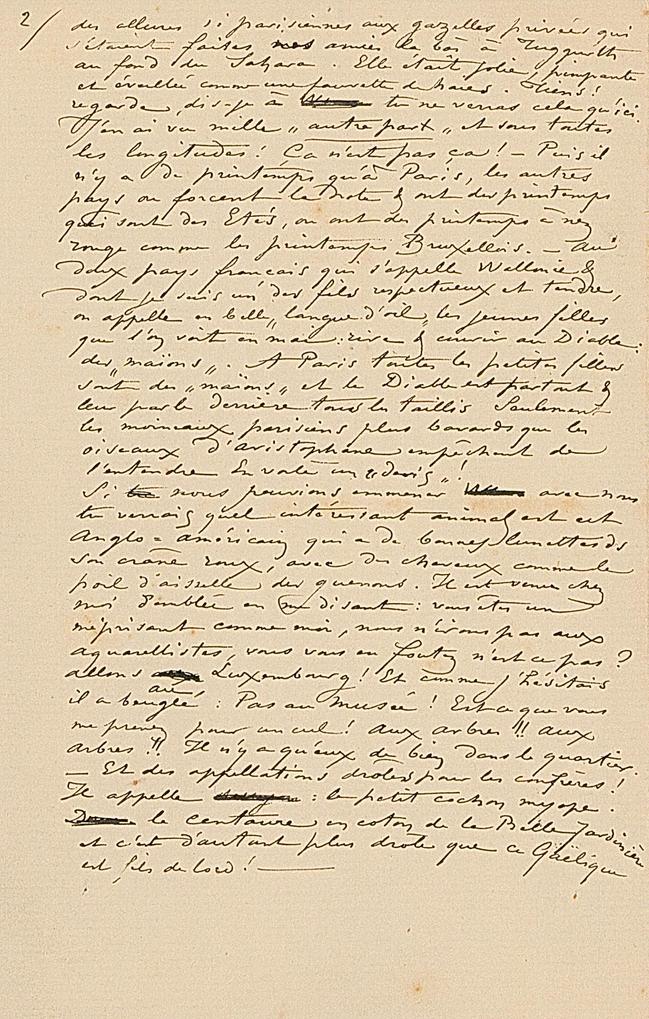 2/
des allures si parisiennes aux gazelles privées qui
s'étaient faites nos amies là bas à Tuggurth
au fond du Sahara. Elle était jolie, pimpante
et éveillée comme une fauvette de haies. Tiens!
regarde, dis-je à tu ne verras cela qu'ici.
J'en ai vu mille „autre part„ et sous toutes
les longitudes! Ça n'est pas ça! – Puis il
n'y a de printemps qu'à Paris, les autres
pays ou forcent la note & ont des printemps
qui sont des Etés, ou ont des printemps à nez
rouge comme les printemps Bruxellois. – Au
doux pays français qui s'appelle Wallonie &
dont je suis un des fils respectueux et tendre,
on appelle en belle „langue d'oil„ les jeunes filles
que l'on voit en mai: rire & courir au Diable:
des „maïons„. A Paris toutes les petites filles
sont des „maïons„ et le Diable est partout &
leur parle derrière tous les taillis Seulement
les moineaux parisiens plus bavards que les
oiseaux d'aristophane empêchent de
l'entendre En voilà un „devis„!
Si nous pouvions emmener avec nous
tu verrais quel intéressant animal est cet
Anglo-américain qui a de bonnes lunettes
son crâne roux, avec des cheveux comme le
poil d'aisselle des guenons. Il est venu chez
moi d'emblée en me disant: vous êtes un
méprisant comme moi, nous n'irons pas aux
aquarellistes, vous vous en foutez n'est ce pas?
allons au Luxembourg! Et comme j'hésitais
il a beuglé: Pas au Musée! Est ce que vous
me prenez pour un cul! aux arbres!! aux
arbres!! Il n'y a qu'eux de bien dans le quartier.
– Et des appellations drôles pour les confrères!
Il appelle : le petit cochon myope.
le centaure en coton de la Belle Jardinière
et c'est d'autant plus drôle que ce Gaëlique
est fils de lord! —